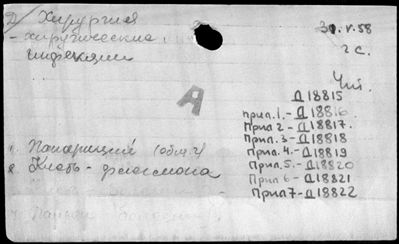 2/ Хирургия
- хирургические
инфекции
30.V.58
2 с.
Чит.
А
Д 18815
прил. 1. - Д 18816
Прил 2 - Д 18817.
Прил. 3 - Д 18818
Прил. 4. - Д 18819
Прил. 5. - Д 18820
Прил 6 - Д 18821
Прил 7 - Д 18822
1. Панариций (общ.ч)
2. Кисть - флегмона